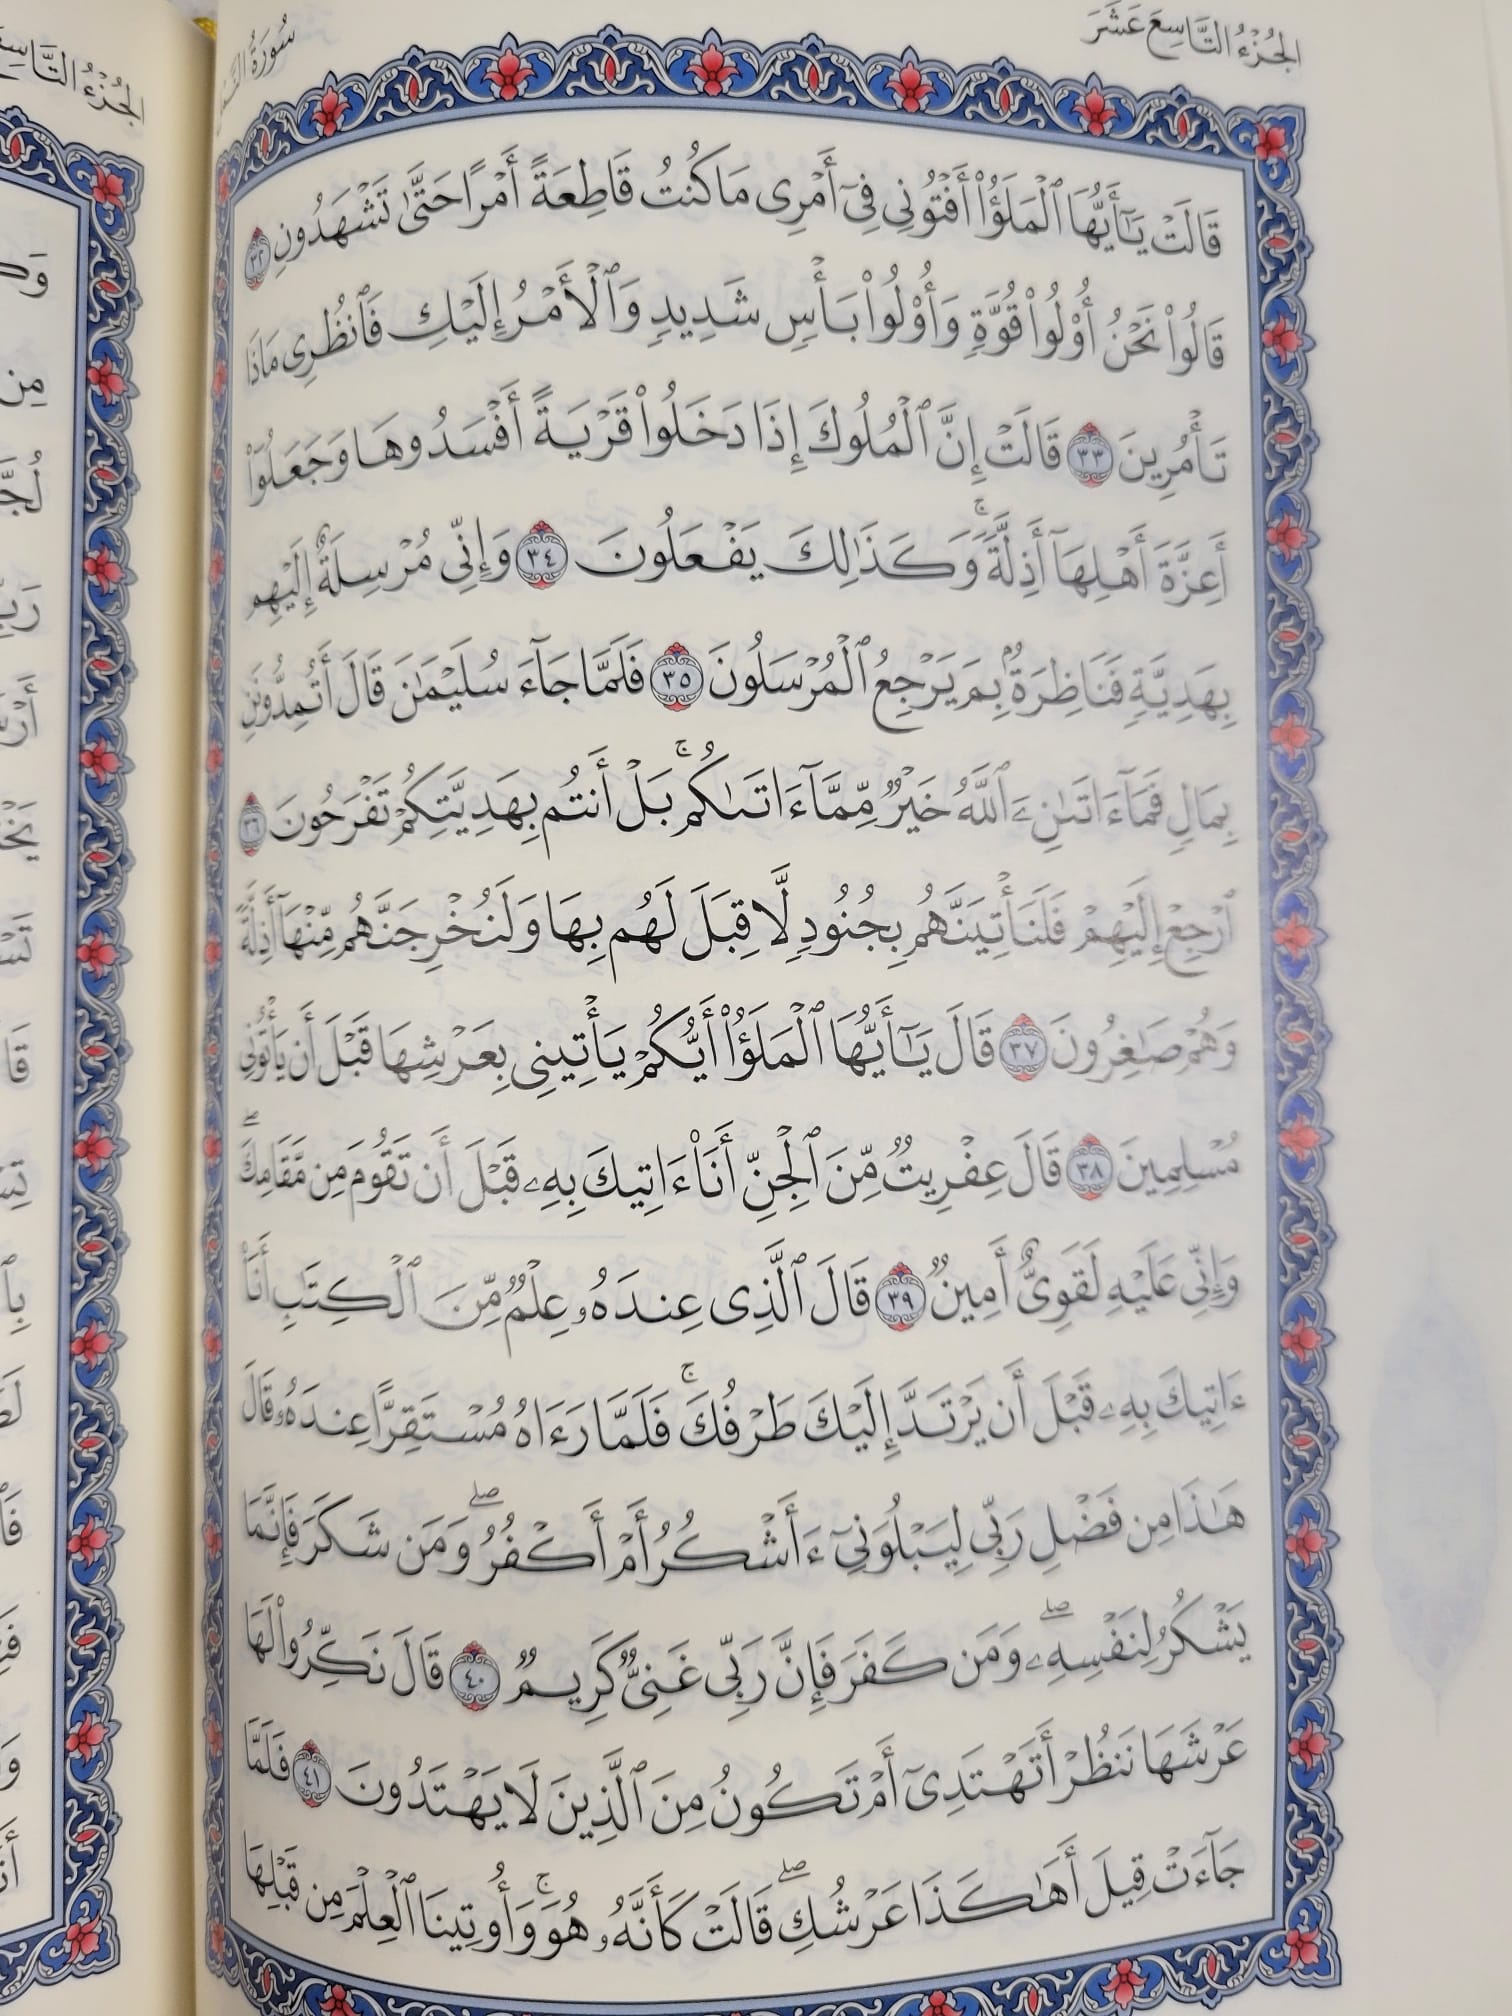 الجُزْءُ التَّاسِعَ عَشَرَ
سُورَةُ النَّمْلِ
قَالَتْ يَٰٓأَيُّهَا ٱلْمَلَؤُا۟ أَفْتُونِى فِىٓ أَمْرِى مَا كُنتُ قَاطِعَةً أَمْرًا حَتَّىٰ تَشْهَدُونِ ٣٢
قَالُوا۟ نَحْنُ أُو۟لُوا۟ قُوَّةٍ وَأُو۟لُوا۟ بَأْسٍ شَدِيدٍ وَٱلْأَمْرُ إِلَيْكِ فَٱنظُرِى مَاذَا
تَأْمُرِينَ ٣٣ قَالَتْ إِنَّ ٱلْمُلُوكَ إِذَا دَخَلُوا۟ قَرْيَةً أَفْسَدُوهَا وَجَعَلُوٓا۟
أَعِزَّةَ أَهْلِهَآ أَذِلَّةً ۖ وَكَذَٰلِكَ يَفْعَلُونَ ٣٤ وَإِنِّى مُرْسِلَةٌ إِلَيْهِم
بِهَدِيَّةٍ فَنَاظِرَةٌۢ بِمَ يَرْجِعُ ٱلْمُرْسَلُونَ ٣٥ فَلَمَّا جَآءَ سُلَيْمَٰنَ قَالَ أَتُمِدُّونَنِ
بِمَالٍ فَمَآ ءَاتَىٰنِۦَ ٱللَّهُ خَيْرٌ مِّمَّآ ءَاتَىٰكُم ۚ بَلْ أَنتُم بِهَدِيَّتِكُمْ تَفْرَحُونَ ٣٦
ٱرْجِعْ إِلَيْهِمْ فَلَنَأْتِيَنَّهُم بِجُنُودٍ لَّا قِبَلَ لَهُم بِهَا وَلَنُخْرِجَنَّهُم مِّنْهَآ أَذِلَّةً
وَهُمْ صَٰغِرُونَ ٣٧ قَالَ يَٰٓأَيُّهَا ٱلْمَلَؤُا۟ أَيُّكُمْ يَأْتِينِى بِعَرْشِهَا قَبْلَ أَن يَأْتُونِى
مُسْلِمِينَ ٣٨ قَالَ عِفْرِيتٌ مِّنَ ٱلْجِنِّ أَنَا۠ ءَاتِيكَ بِهِۦ قَبْلَ أَن تَقُومَ مِن مَّقَامِكَ ۖ
وَإِنِّى عَلَيْهِ لَقَوِىٌّ أَمِينٌ ٣٩ قَالَ ٱلَّذِى عِندَهُۥ عِلْمٌ مِّنَ ٱلْكِتَٰبِ أَنَا۠
ءَاتِيكَ بِهِۦ قَبْلَ أَن يَرْتَدَّ إِلَيْكَ طَرْفُكَ ۚ فَلَمَّا رَءَاهُ مُسْتَقِرًّا عِندَهُۥ قَالَ
هَٰذَا مِن فَضْلِ رَبِّى لِيَبْلُوَنِىٓ ءَأَشْكُرُ أَمْ أَكْفُرُ ۖ وَمَن شَكَرَ فَإِنَّمَا
يَشْكُرُ لِنَفْسِهِۦ ۖ وَمَن كَفَرَ فَإِنَّ رَبِّى غَنِىٌّ كَرِيمٌ ٤٠ قَالَ نَكِّرُوا۟ لَهَا
عَرْشَهَا نَنظُرْ أَتَهْتَدِىٓ أَمْ تَكُونُ مِنَ ٱلَّذِينَ لَا يَهْتَدُونَ ٤١ فَلَمَّا
جَآءَتْ قِيلَ أَهَٰكَذَا عَرْشُكِ ۖ قَالَتْ كَأَنَّهُۥ هُوَ ۚ وَأُوتِينَا ٱلْعِلْمَ مِن قَبْلِهَا